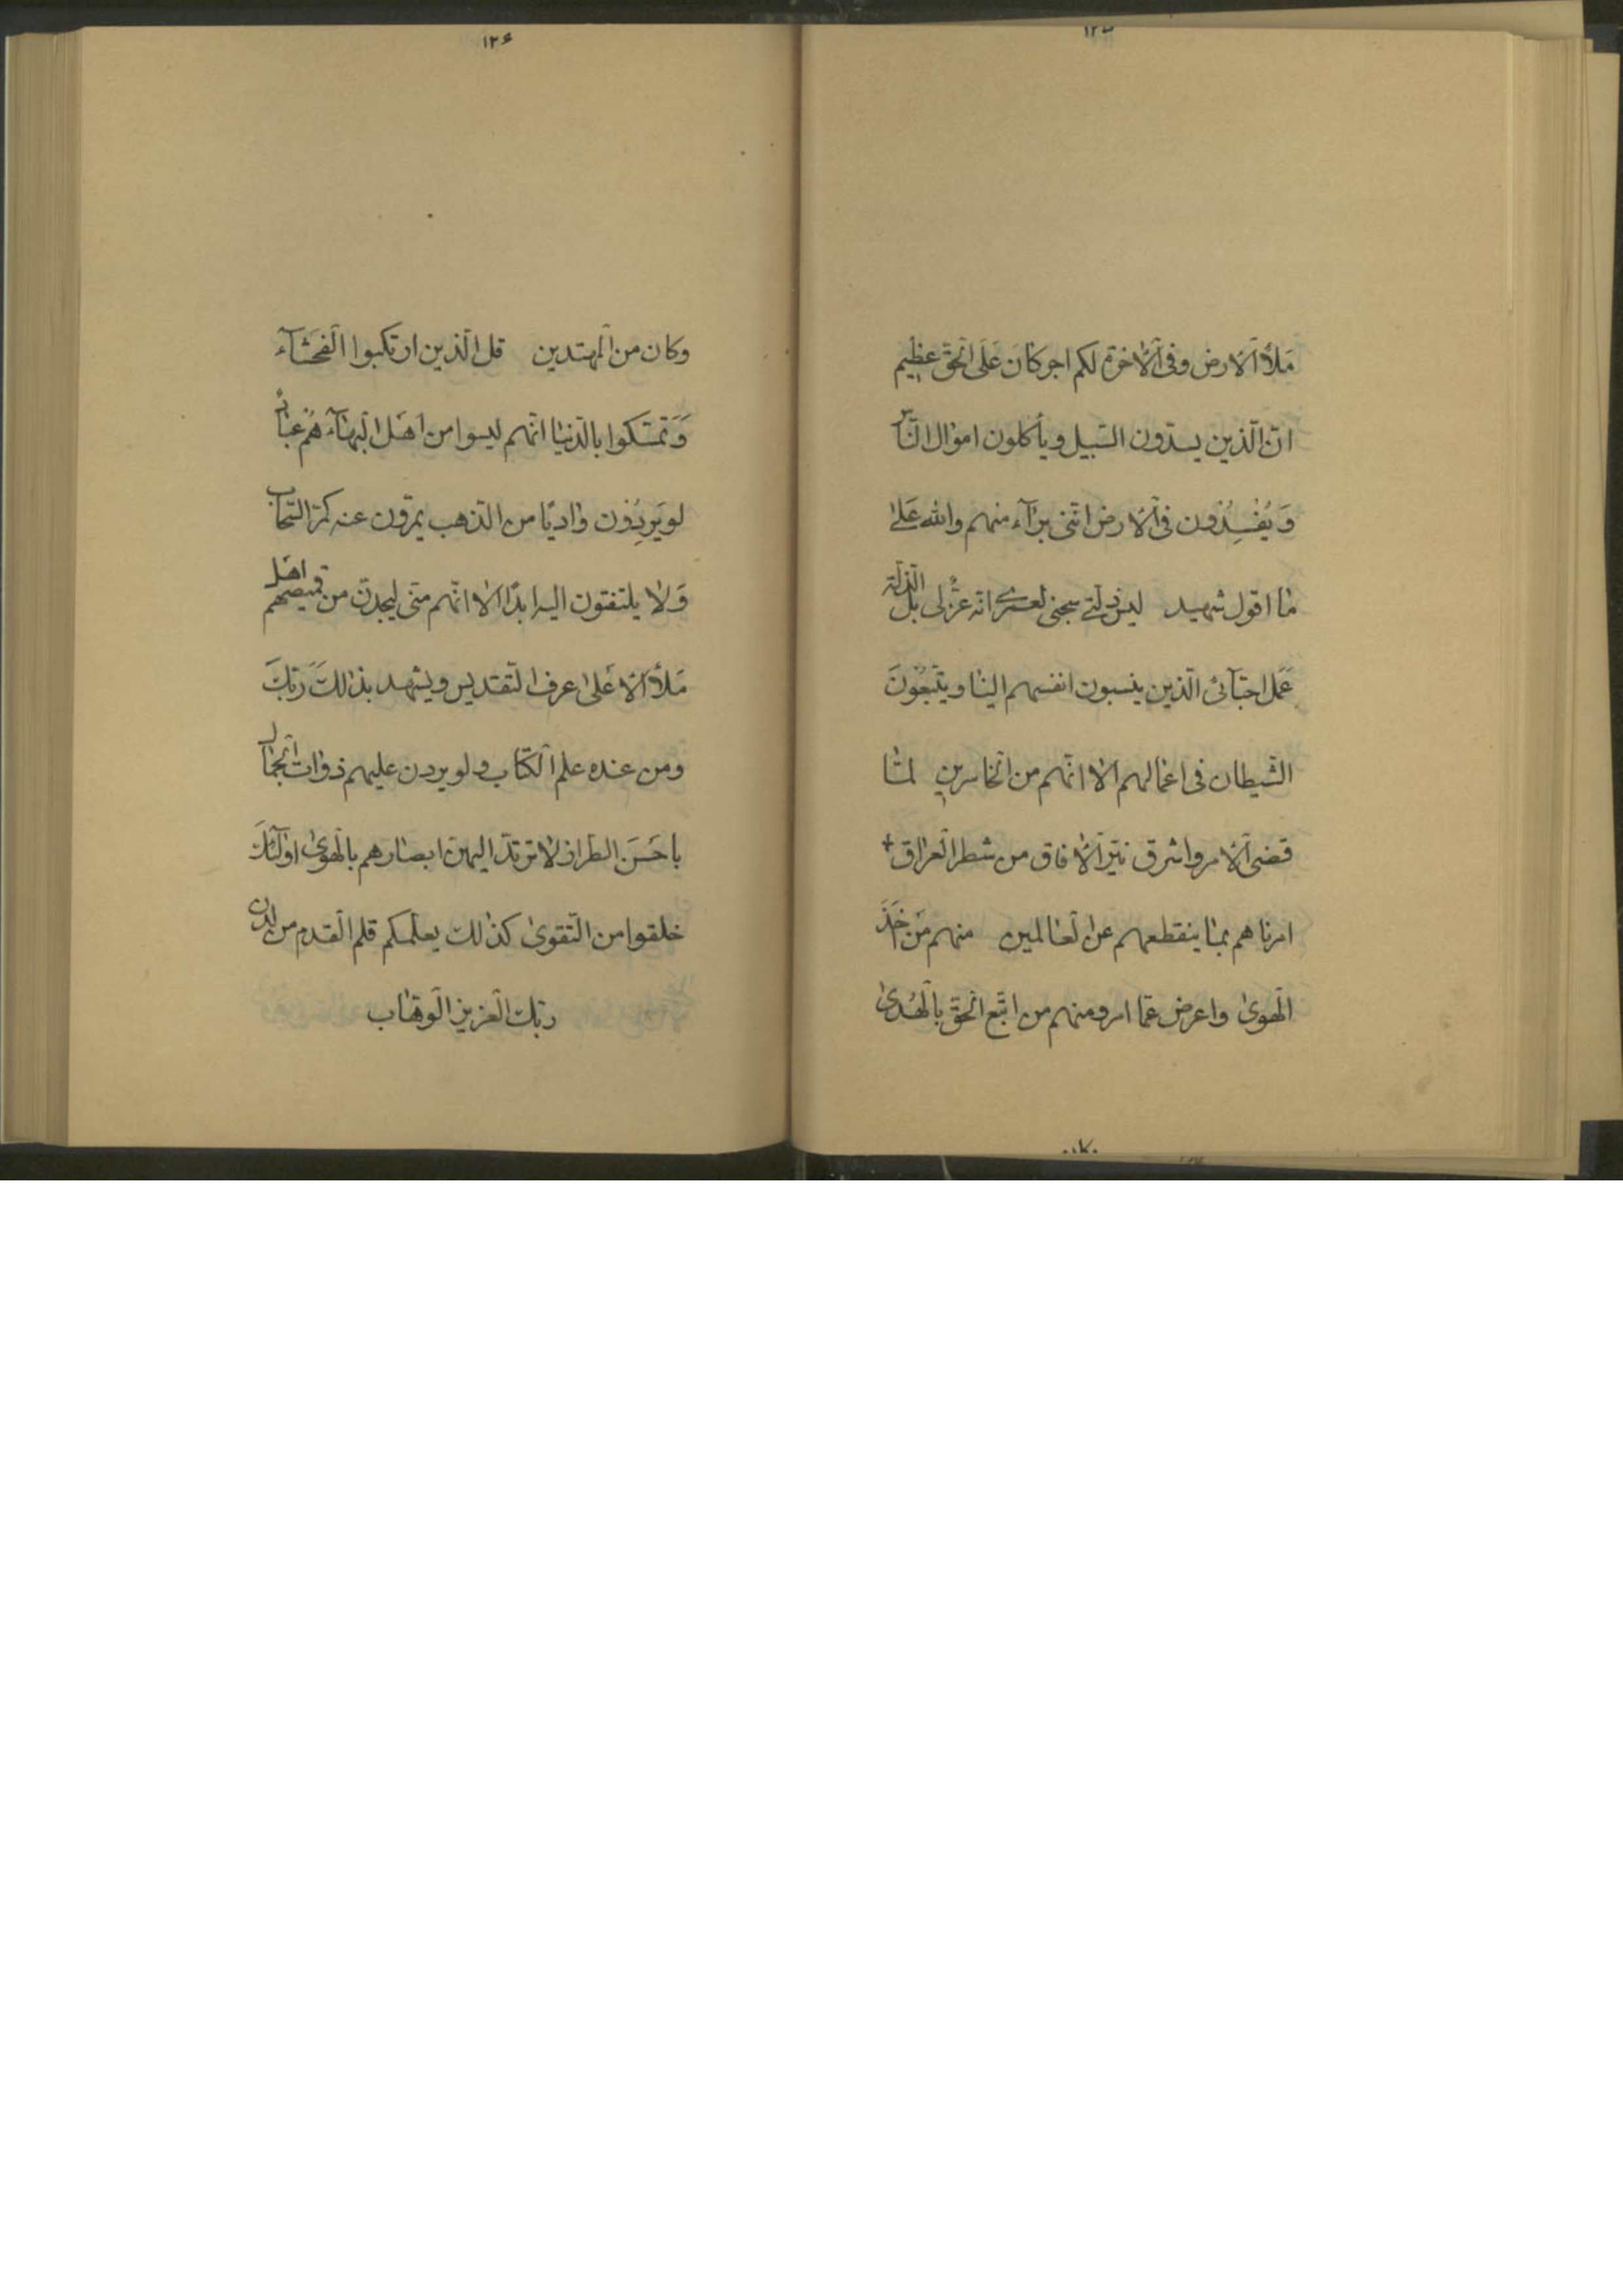 ١٢٥
مَلأ الارض وفى الاخرة لكم اجر كانَ عَلَى الحقّ عظيم
انّ الّذين يسدّون السّبيل ويأكلون اموال النّاس
وَيُفسِدُون فى الارض انّنى برآء منهم والله عَلى
ما اقول شهيد ليس ذلّتى سجنى لعمرى انّه عزٌّ لى بل الذّلّة
عَمَل احبّآئى الّذين ينسبون انفسهم الينا ويتّبعُونَ
الشّيطان فى اعمالهم الا انّهم من الخاسرين لمّا
قضى الامر واشرق نيّر الافاق من شطر العراق
امرناهم بما ينقطعهم عن العالمين منهم مَن اخَذَ
الهوى واعرض عمّا امر ومنهم من اتّبع الحقّ بالهُدى
١٢٦
وكان من المهتدين قل الّذين ارتكبوا الفحشآء
وَتمسّكوا بالدّنيا انّهم ليسوا من اهَل البهآء هُم عبادٌ
لو يَرِدُون وادياً من الذّهب يمرّون عنه كمرّ السّحاب
وَلا يلتفتون اليه ابداً الا انّهم منّى ليجدنّ من قميصهم اهَل
مَلأ الاعَلى عرف التّقديس ويشهد بذلكَ رَبّكَ
ومن عنده علم الكتاب ولو يردن عليهم ذوات الجمال
باحَسَن الطراز لا ترتدّ اليهنّ ابصارهم بالهوى اولٓئكَ
خلقوا من التّقوى كذلك يعلّمكم قلم القدم من لدن
ربّك العزيز الوهّاب